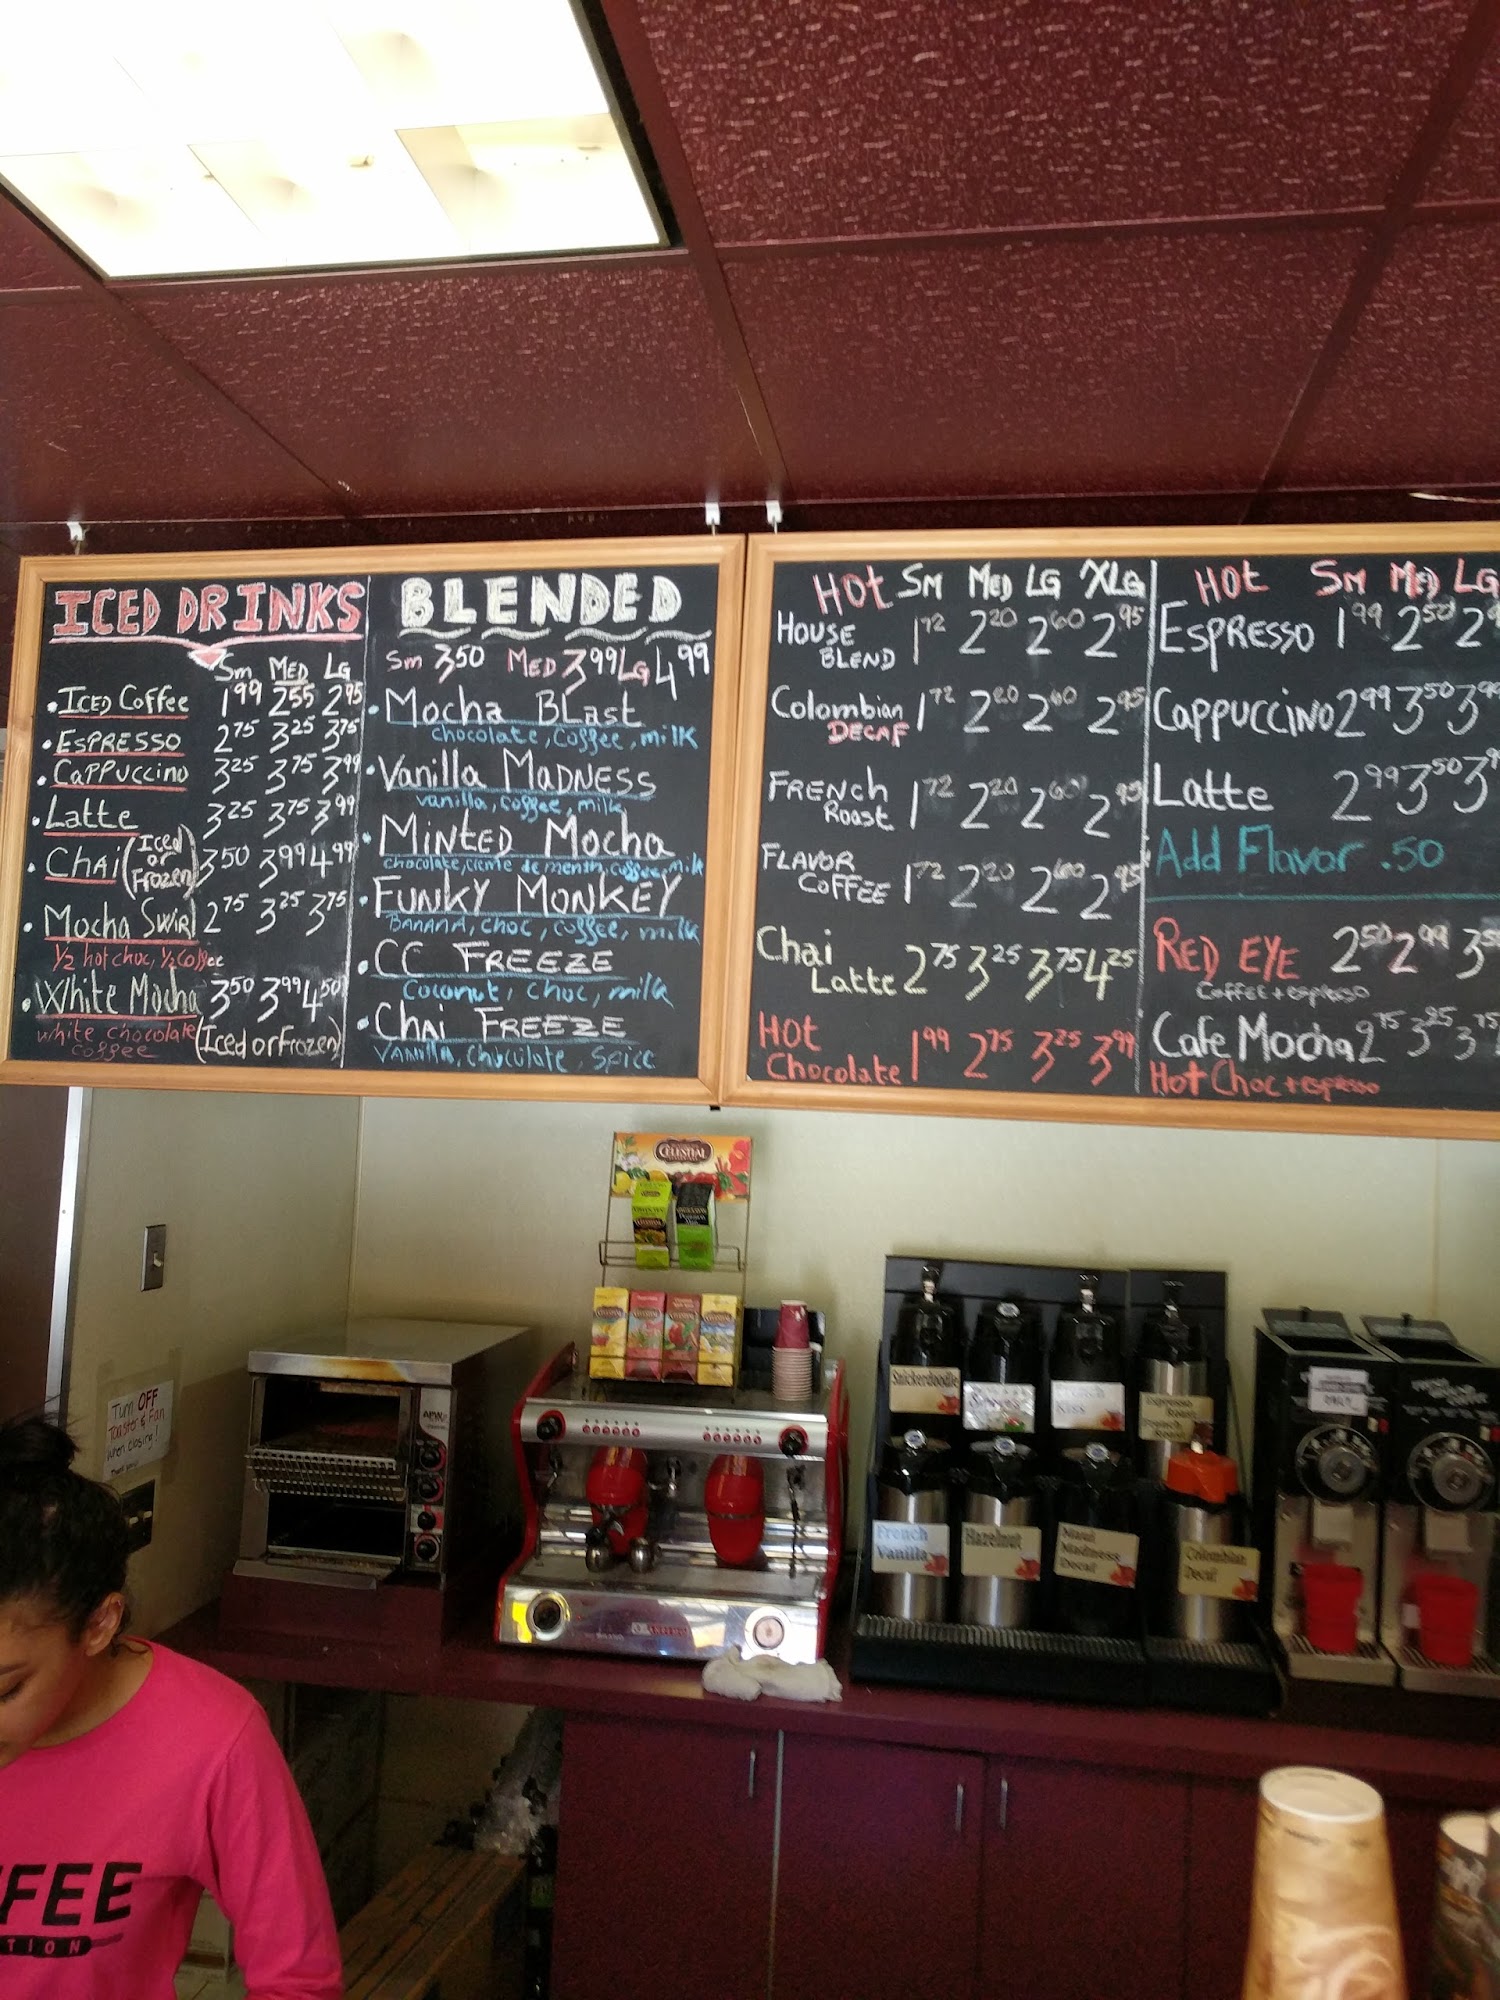 ICED DRINKS
Sm MED LG
• ICED COFFEE 1.99 2.55 2.95
• ESPRESSO 2.75 3.25 3.75
• CAPPUCCINO 3.25 3.75 3.99
• LATTE 3.25 3.75 3.99
• CHAI (Iced or Frozen) 3.50 3.99 4.99
• MOCHA SWIRL 2.75 3.25 3.75
1/2 hot choc, 1/2 Coffee
• White Mocha 3.50 3.99 4.50
white chocolate coffee (Iced or Frozen)
BLENDED
Sm 3.50 MED 3.99 LG 4.99
• Mocha BLast
chocolate, Coffee, milk
• Vanilla MADNESS
vanilla, coffee, milk
• MINTED Mocha
chocolate, creme de menth, coffee, milk
• FUNKY MONKEY
BANANA, choc, coffee, milk
• CC FREEZE
Coconut, choc, milk
• Chai FREEZE
VANILLA, Chocolate, Spice
HOT SM MED LG XLG
HOUSE BLEND 1.72 2.20 2.60 2.95
Colombian DECAF 1.72 2.20 2.60 2.95
FRENCH ROAST 1.72 2.20 2.60 2.95
FLAVOR COFFEE 1.72 2.20 2.60 2.95
Chai Latte 2.75 3.25 3.75 4.25
HOT Chocolate 1.99 2.75 3.25 3.99
HOT SM MED LG
ESPRESSO 1.99 2.50 2
CAPPUCCINO 2.99 3.50 3.99
LATTE 2.99 3.50 3
Add Flavor .50
RED EYE 2.50 2.99 3.50
COFFEE + espresso
Cafe Mocha 2.75 3.25 3.75
Hot Choc + espresso
CELESTIAL
Turn OFF
Toaster & Fan
when closing!
APW
Snickerdoodle
Kiss
French
Vanilla
Hazelnut
Maui
Madness
Decaf
Colombian
Decaf
FEE
TION